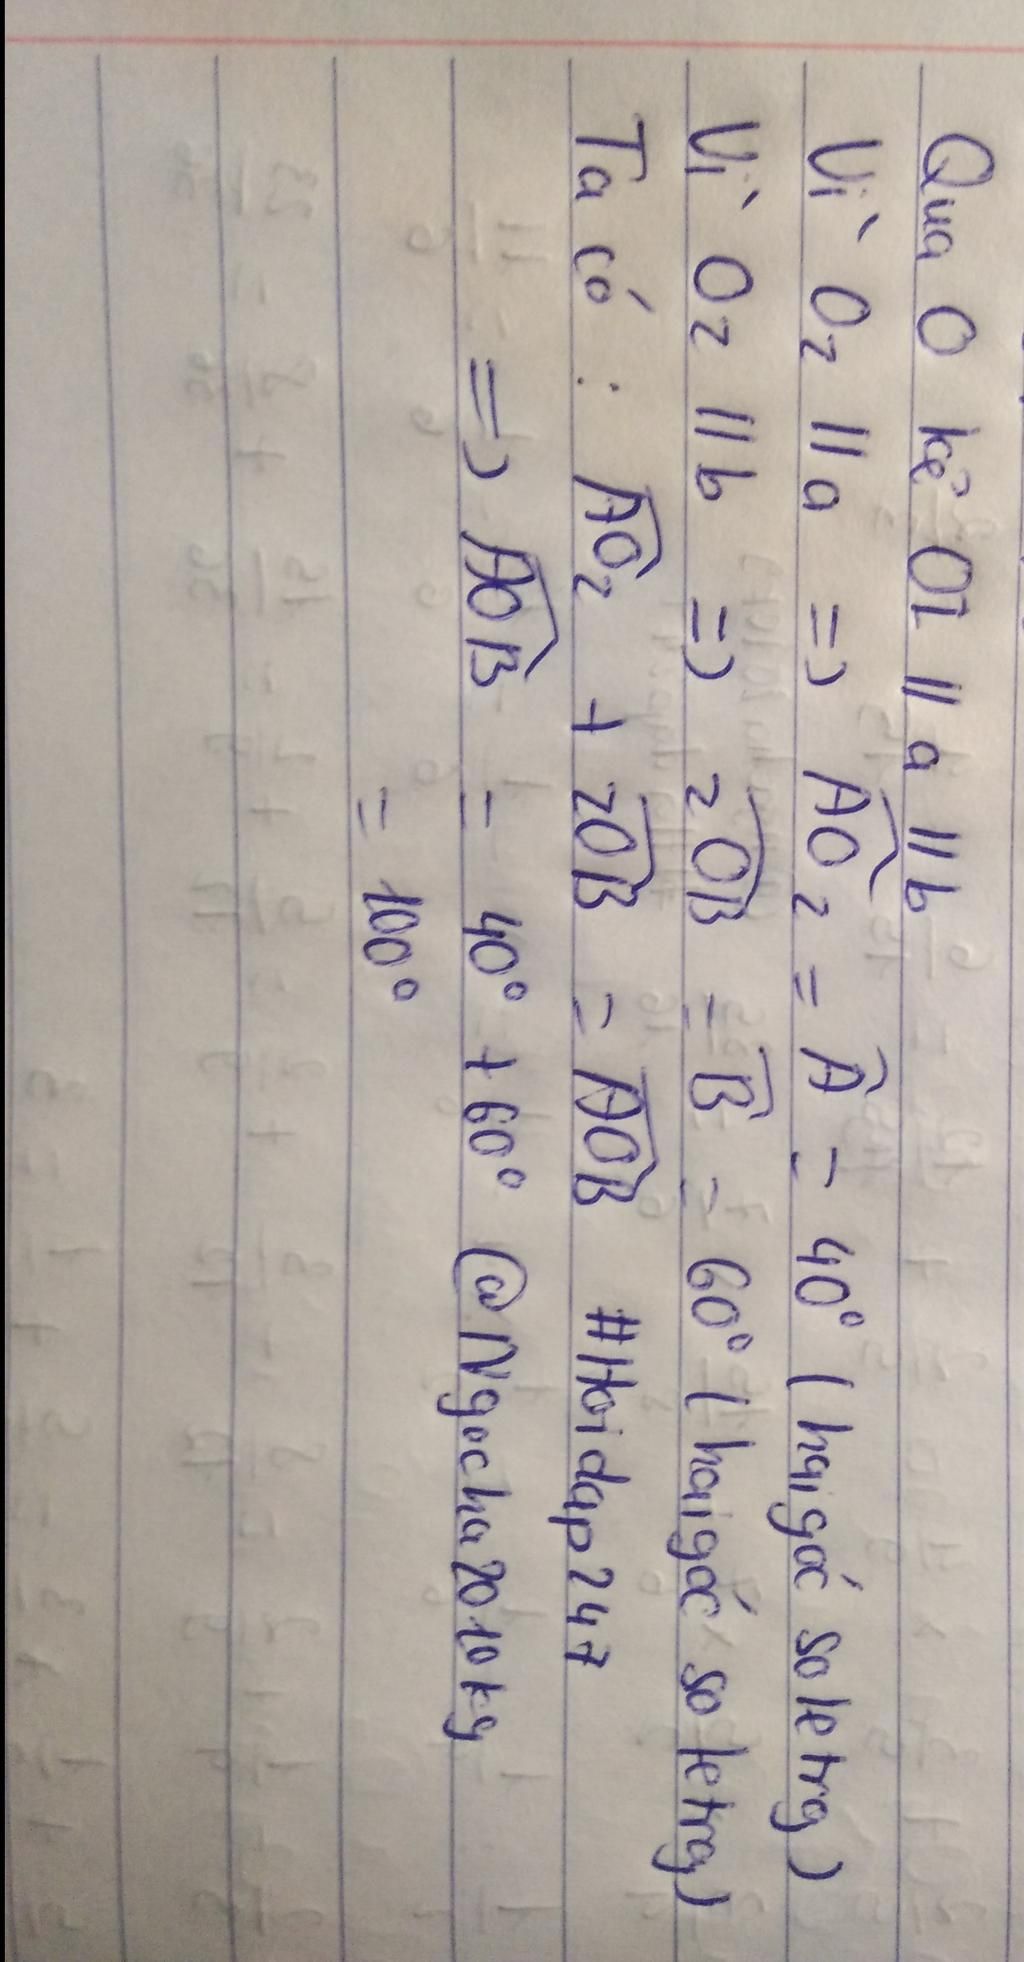 Qua O kẻ Oz // a // b
Vì Oz // a => AOz = Â = 40° (hai góc so le trg)
Vì Oz // b => zOB = B̂ = 60° (hai góc so le trg)
Ta có : AOz + zOB = AOB #Hoidap247
=> AOB = 40° + 60° @Ngocha2010kg
= 100°